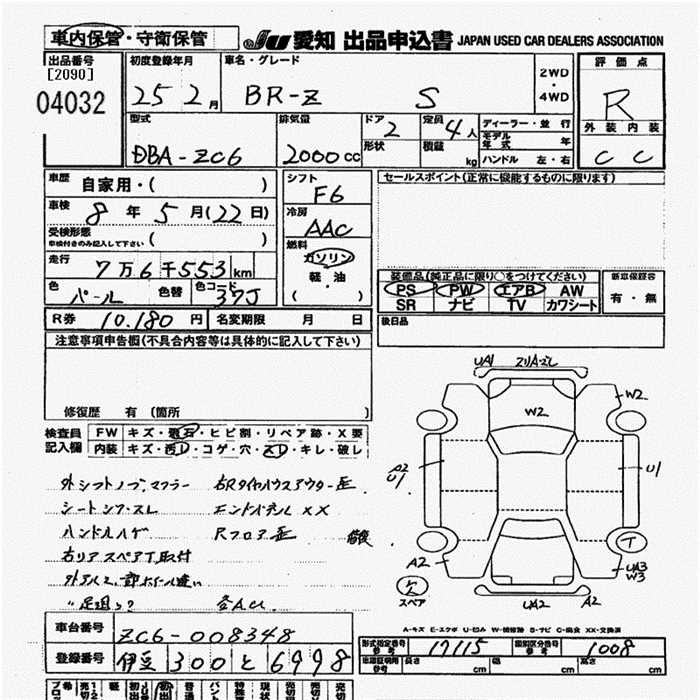 車内保管・守衛保管
JU 愛知 出品申込書 JAPAN USED CAR DEALERS ASSOCIATION
出品番号
[2090]
04032
初度登録年月
25 2月
車名・グレード
BR-Z S
2WD
・
4WD
評価点
R
外装 内装
C C
型式
DBA-ZC6
排気量
2000cc
ドア
2
形状
定員
4人
積載
kg
ディーラー・並行
モデル年式 年
ハンドル 左・右
車歴
自家用・( )
車検
8年5月(22日)
受検形態
車検付きのみ記入して下さい ( )
走行
7万6千553km
色
パール
色替
色コード
37J
シフト
F6
冷房
AAC
燃料
ガソリン
軽・油
( )
セールスポイント(正常に機能するものに限ります)
装備品(純正品に限り○をつけてください)
PS PW エアB AW
SR ナビ TV カワシート
新車保証書
有・無
R券 10.180円
名変期限 月 日
後日品
注意事項申告欄(不具合内容等は具体的に記入して下さい)
修復歴 有(箇所 )
検査員
記入欄
FW キズ・飛石・ヒビ割・リペア跡・X要
内装 キズ・汚レ・コゲ・穴・スレ・キレ・破レ
外シフトノブ、マフラー
シートシワ・スレ
エンドパネルXX
ハンドルハゲ
Rフロア歪
右リアスペアT取付
UA1
W2
W2
A2
U1
U1
A2
T
UA3
W3
UA2
A2
スペア
A-キズ E-エクボ U-凹み W-補修跡 S-サビ C-腐食 XX-交換済
車台番号
ZC6-008348
登録番号
伊豆 300 と 6998
型式指定番号
参考
17115
類別区分番号
参考
1008
長さ cm
幅 cm
高さ cm